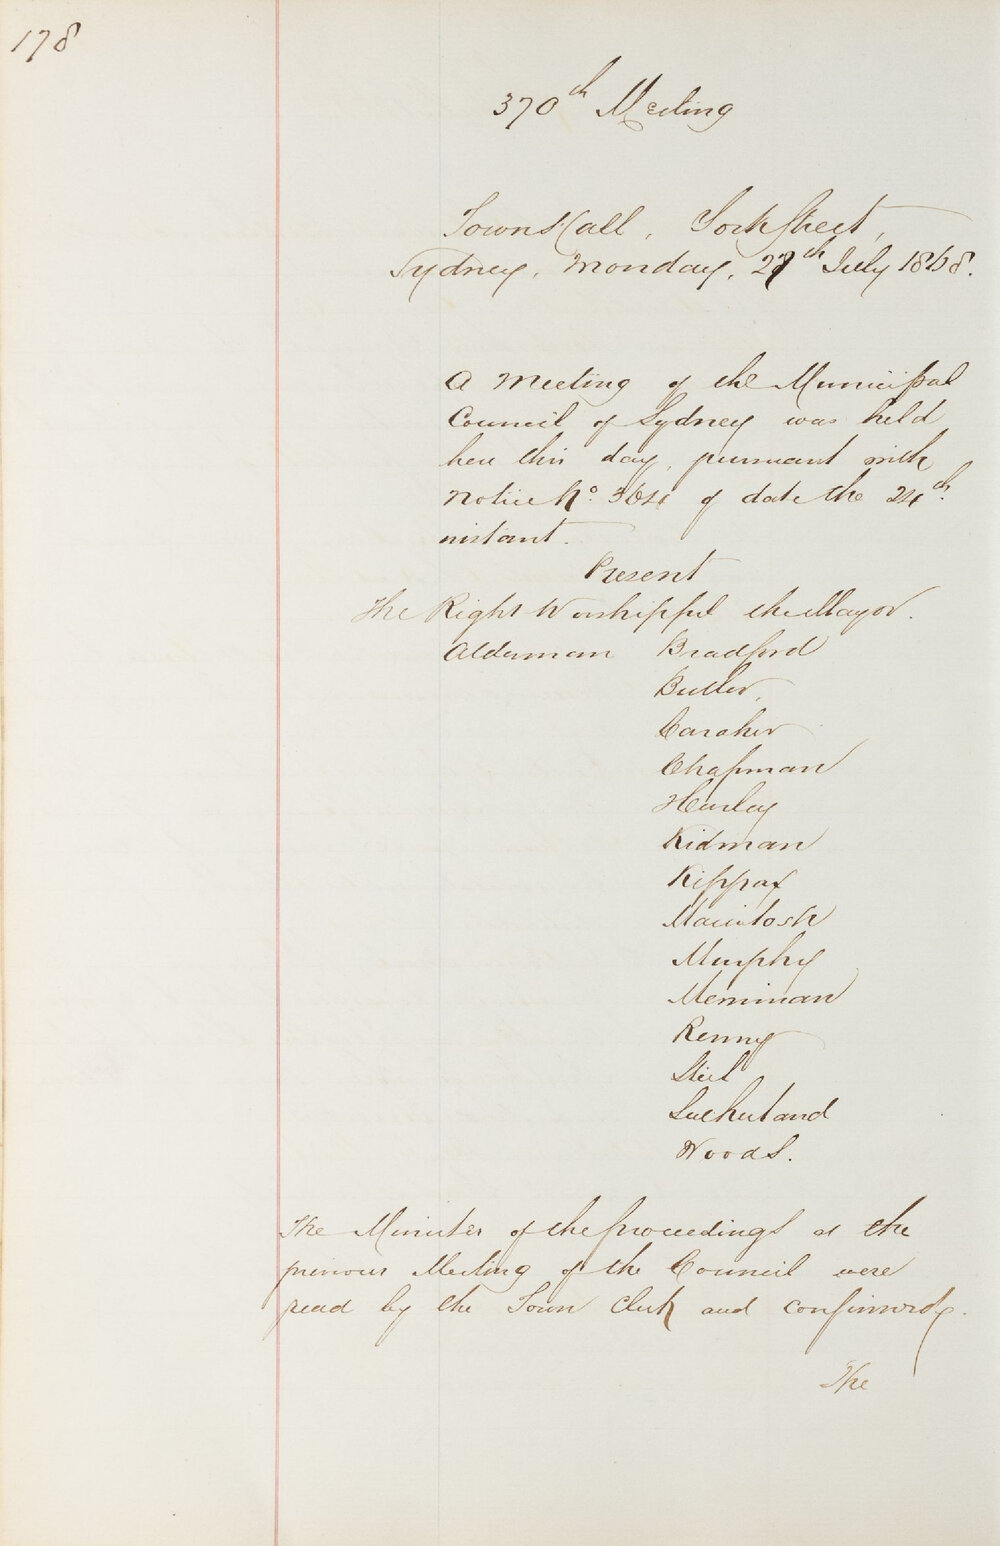 178
370th Meeting
Town Hall, York Street,
Sydney, Monday, 27th July 1868.
A Meeting of the Municipal
Council of Sydney was held
here this day, pursuant with
Notice No. 364 of date the 24th
instant.
Present
The Right Worshipful the Mayor.
Alderman Bradford
Butler,
Caraher
Chapman
Hurley
Kidman
Kippax
Macintosh
Murphy
Merriman
Renny
Steel
Sutherland
Woods.
The Minutes of the proceedings at the
previous Meeting of the Council were
read by the Town Clerk and confirmed.
The